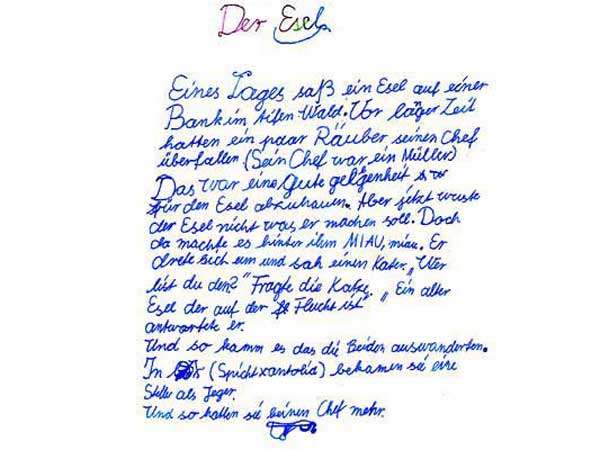 Der Esel
Eines Tages saß ein Esel auf einer
Bank im tifen Wald. Vor läger Zeit
hatten ein paar Räuber seinen Chef
überfallen. (Sein Chef war ein Müller)
Das war eine Gute gelgenheit
für den Esel abzuhauen. Aber jetzt wuste
der Esel nicht was er machen soll. Doch
da machte es hinter ihm MIAU, miau. Er
drete sich um und sah einen Kater. „Wer
bist du den?" Fragte die Katze. „Ein alter
Esel der auf der Flucht ist"
antwartete er.
Und so kamm es das die Beiden auswanderten.
In (Spichtxantolia) bekamen sie eine
Stelle als Jeger.
Und so hatten sie keinen Chef mehr.